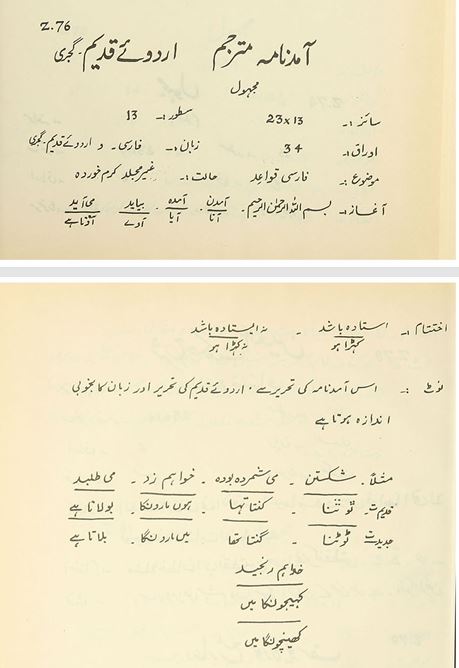 Z.76
آمدنامہ مترجم اردوئے قدیم۔ گجری
مجہول
سائز :۔ 23x13 سطور :۔ 13
اوراق :۔ 34 زبان :۔ فارسی ۔ و اردوئے قدیم۔ گجری
موضوع :۔ فارسی قواعد حالت :۔ غیر مجلد کرم خوردہ
آغاز :۔ بسم اللہ الرحمٰن الرحیم۔ آمدن ۔ آمدہ ۔ بیاید ۔ می آید
آنا آیا آوے آوتا ہے
اختتام :۔ استادہ باشد ۔ نہ ایستادہ باشد
کہڑا ہو نہ کہڑا ہو
نوٹ :۔ اس آمدنامہ کی تحریر سے ۔ اردوئے قدیم کی تحریر اور زبان کا بخوبی
اندازہ ہوتا ہے
مثلاً۔ شکستن ۔ می شمردہ بودہ ۔ خواہم زد ۔ می طلبد
قدیمت۔ توتنا ۔ کنتا تہا ۔ ہوں ماردنگا ۔ بولاتا ہے
جدیدیت ٹوٹنا ۔ گنتا تھا ۔ میں مارونگا ۔ بلاتا ہے
خواہم رنجید
کہیچونگا میں
کھینچونگا میں